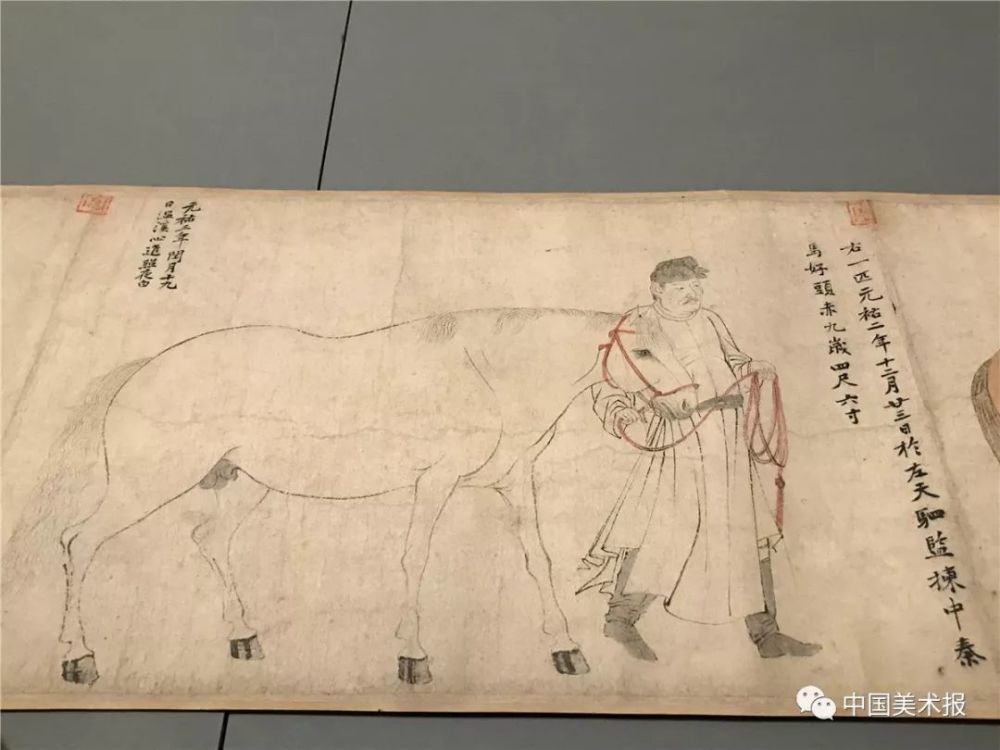 右一匹元祐二年十二月廿三日於左天駟監揀中秦
馬好頭赤九歲四尺六寸
元祐三年閏月十九
日温溪心進照夜白
中国美术报